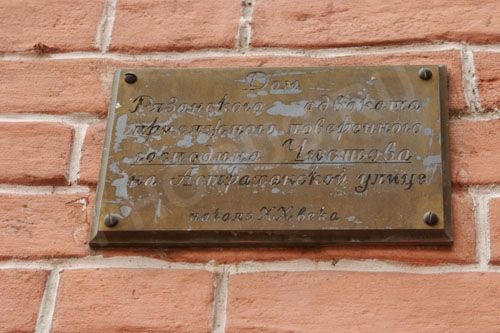 Дом
Рязанского адвоката
присяжного поверенного
господина Чистова
на Астраханской улице
начало XX века